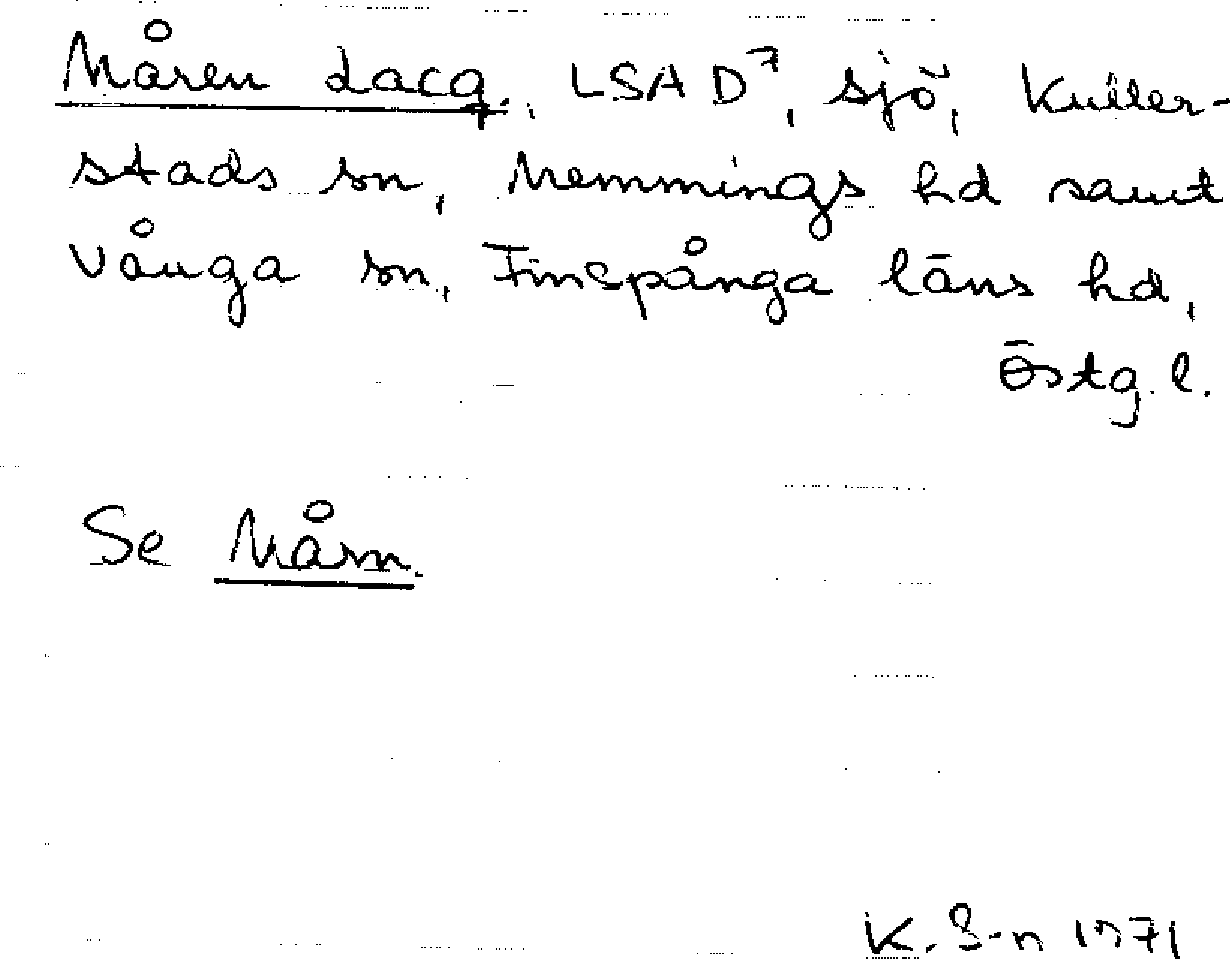 Måren Lacq., LSA D⁷, sjö, Kuller-
stads sn, Memmings hd samt
Vånga sn, Finspånga läns hd,
Östg. l.
Se Mårn.
K. S-n 1971